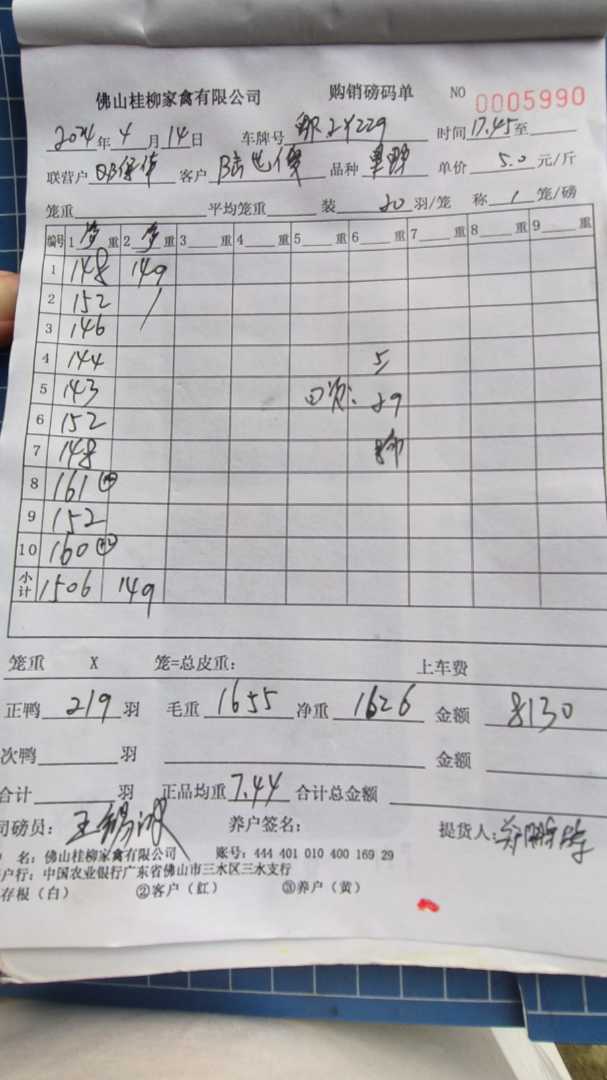 佛山桂柳家禽有限公司 购销磅码单 NO 0005990
2024年4月14日 车牌号 2Y229 时间17.45至
联营户 客户 品种 单价 5.0 元/斤
笼重 平均笼重 装 20 羽/笼 称 1 笼/磅
编号 1 重 2 重 3 重 4 重 5 重 6 重 7 重 8 重 9 重
1 148 149
2 152 /
3 146
4 144 5
5 143 回 29
6 152
7 148
8 161
9 152
10 160
小计 1506 149
笼重 X 笼=总皮重: 上车费
正鸭 219 羽 毛重 1655 净重 1626 金额 8130
次鸭 羽 金额
合计 羽 正品均重 7.44 合计总金额
司磅员: 王 养户签名: 提货人:
名: 佛山桂柳家禽有限公司 账号: 444 401 010 400 169 29
户行: 中国农业银行广东省佛山市三水区三水支行
存根(白) ②客户(红) ③养户(黄)